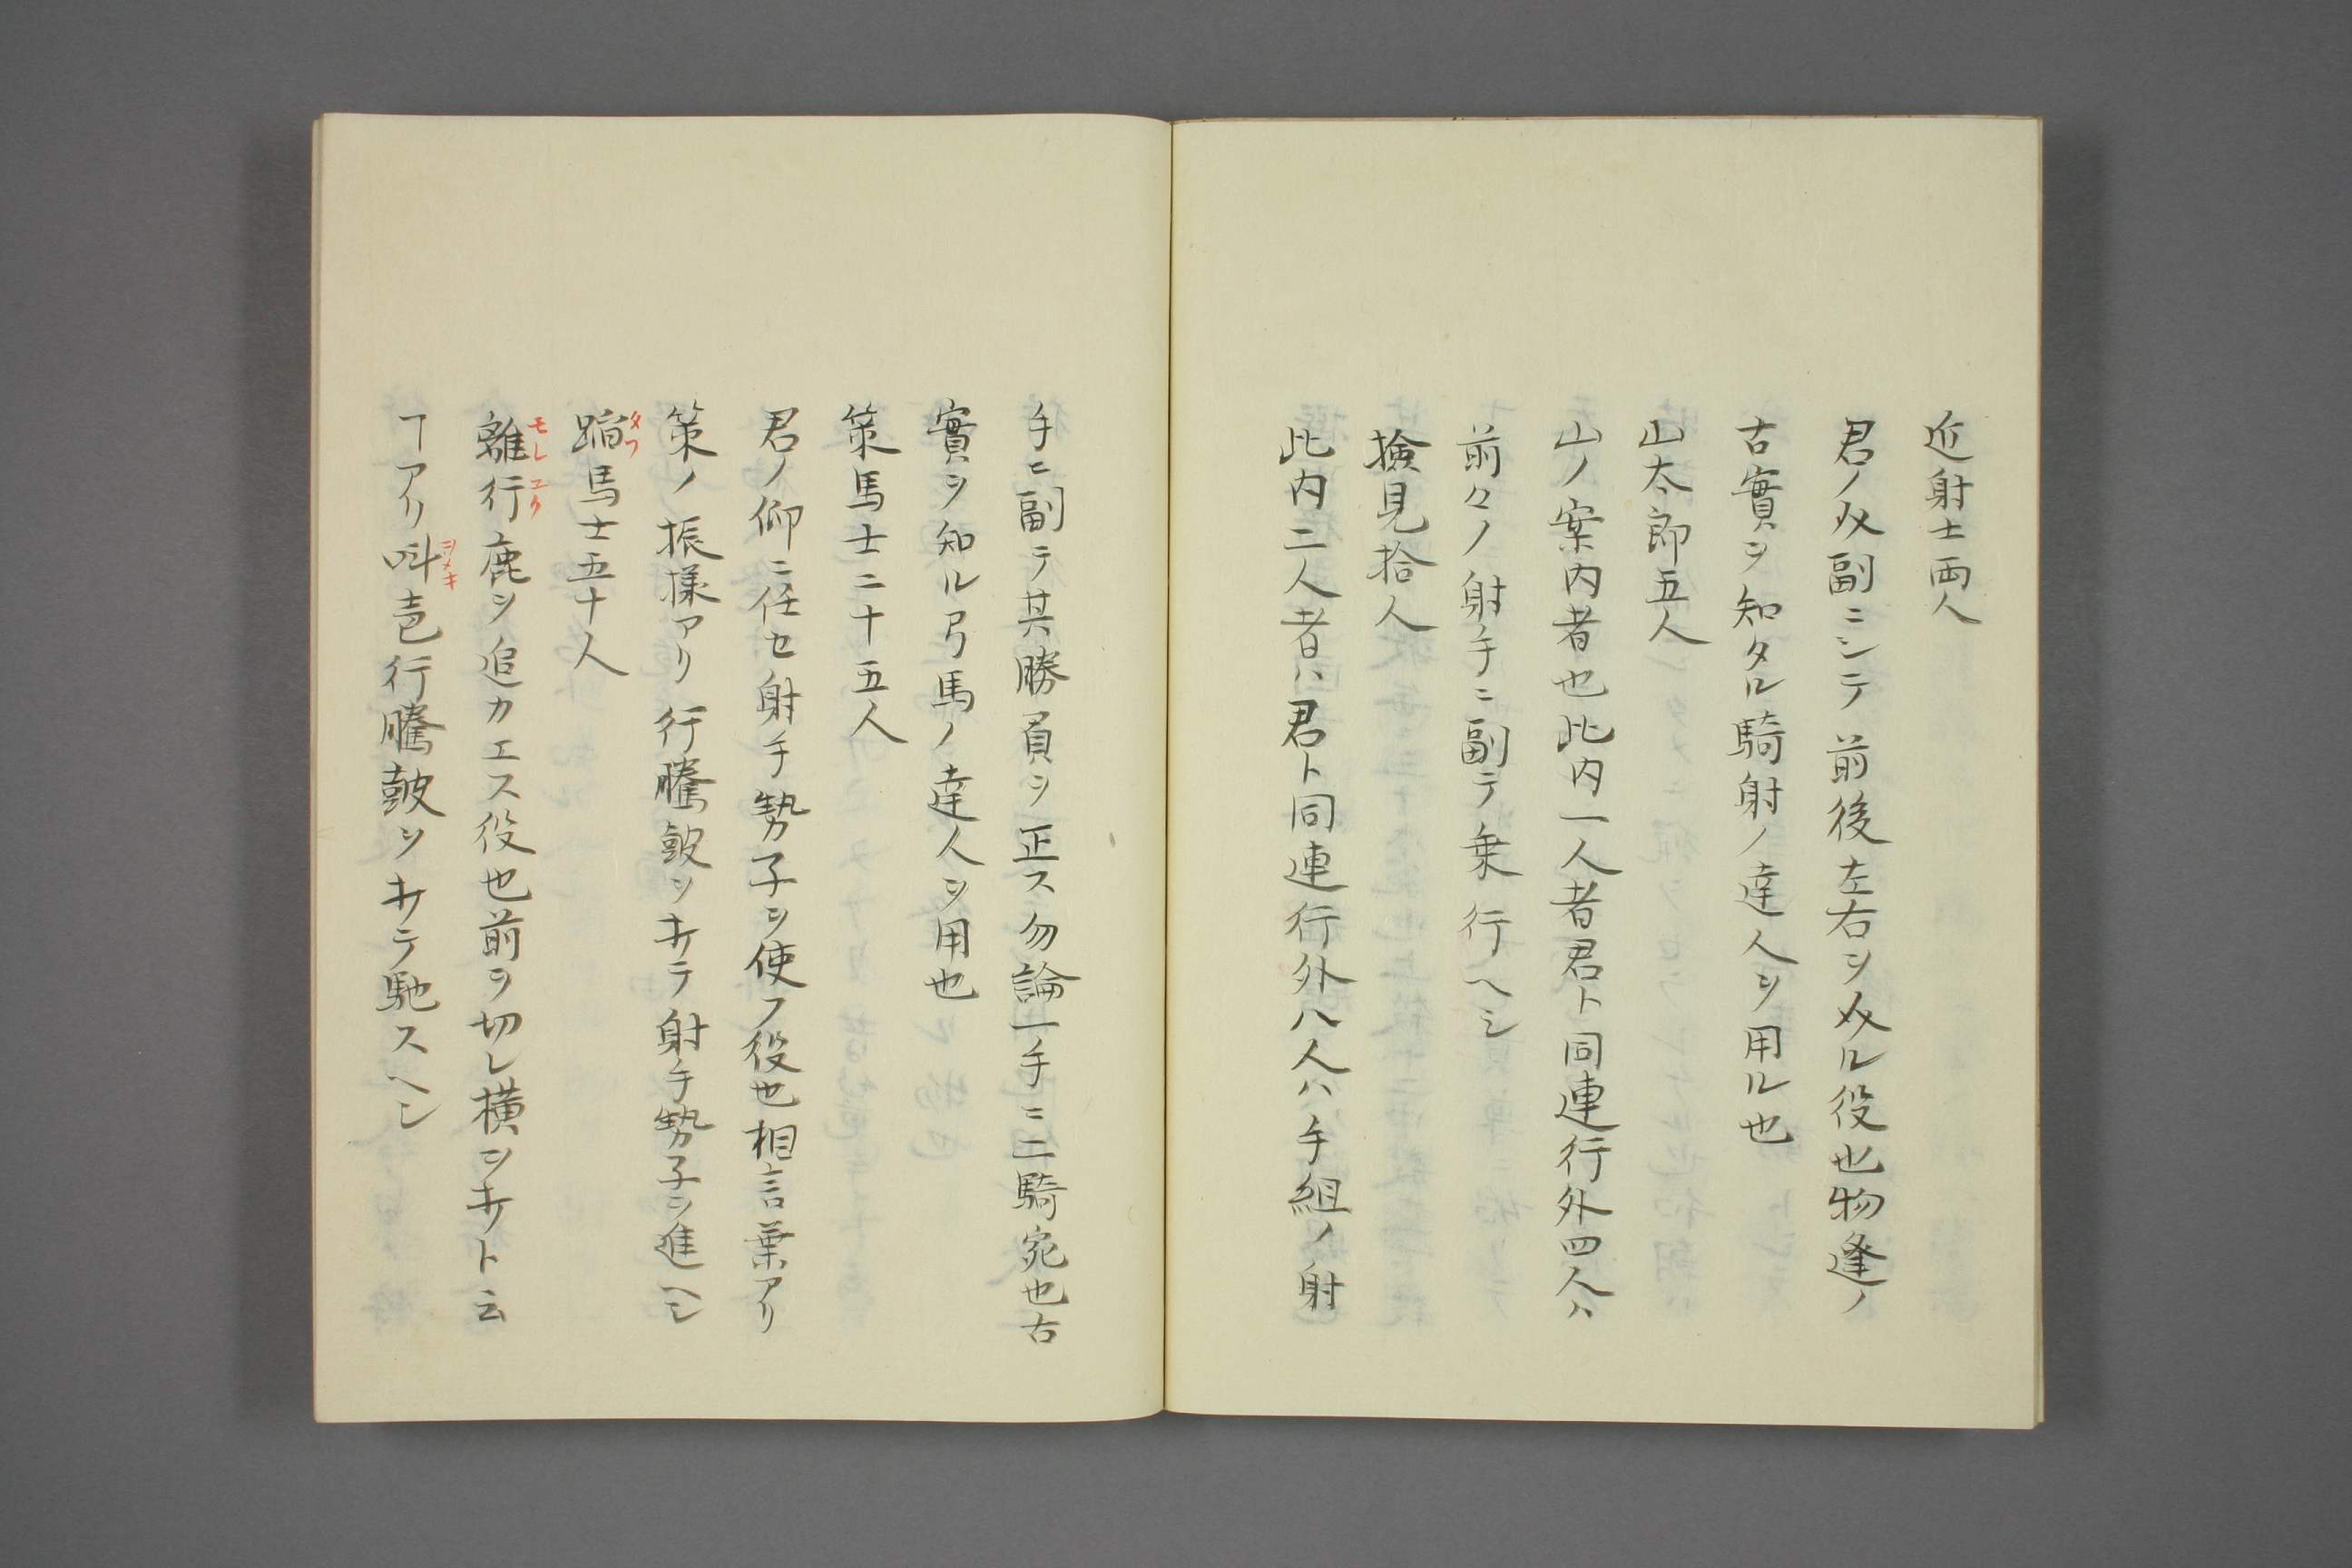 近射士両人
君ノ介副ニシテ前後左右ヲ介ル役也物逢ノ
古實ヲ知タル騎射ノ達人ヲ用ル也
山太郎五人
山ノ案内者也此内一人者君ト同連行外四人ハ
前々ノ射手ニ副テ乗行ヘシ
撿見拾人
此内二人者ハ君ト同連行外八人ハ手組ノ射
手ニ副テ其勝負ヲ正ス勿論一手ニ二騎宛也古
實ヲ知ル弓馬ノ達人ヲ用也
策馬士二十五人
君ノ仰ニ任セ射手勢子ヲ使フ役也相言葉アリ
策ノ振様アリ行騰皷ヲキテ射手勢子ヲ進ヘシ
蹈馬士五十人
タフ
離行鹿ヲ追カエス役也前ヲ切レ横ヲキト云
モレユク
ヿアリ呌壱行騰皷ヲキテ馳スヘシ
ヲメキ